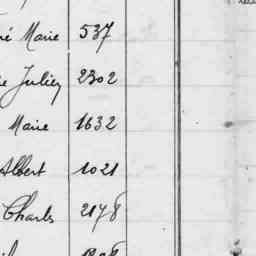 né Marie 537
ie Julien 2302
Marie 1632
Albert 1021
Charles 2178